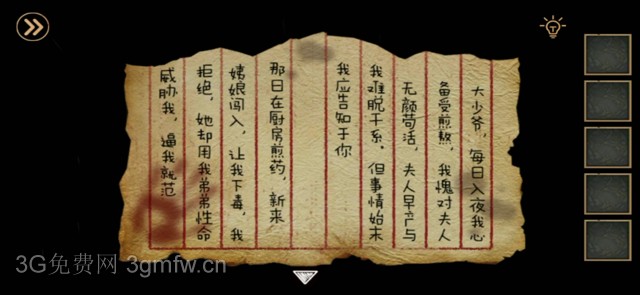 大少爷，每日入夜我心
备受煎熬，我愧对夫人
无颜苟活，夫人早产与
我难脱干系，但事情始末
我应告知于你
那日在厨房煎药，新来
姨娘闯入，让我下毒，我
拒绝，她却用我弟弟性命
威胁我，逼我就范
3G免费网 3gmfw.cn